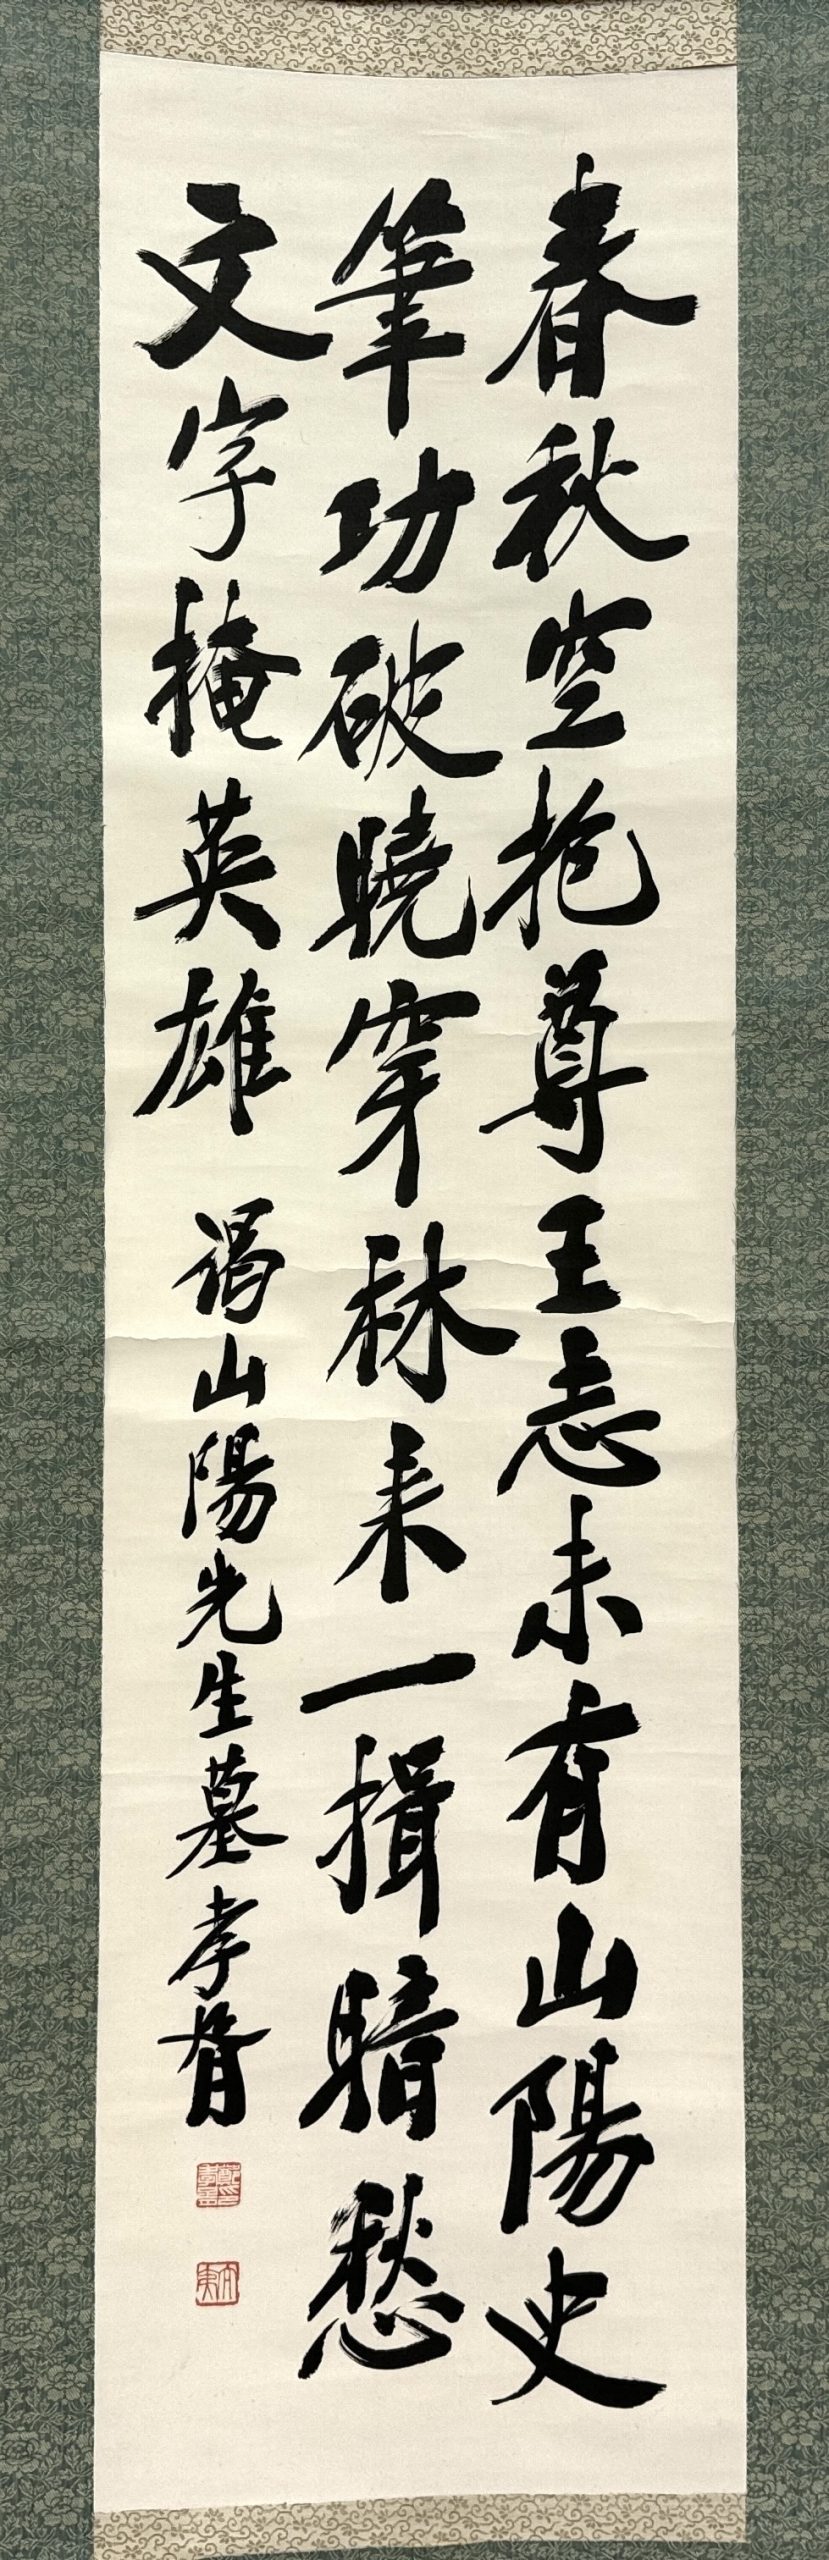 春秋空抱尊王志未有山陽史
筆功破曉穿林来一揖暗愁
文字掩英雄 謁山陽先生墓孝胥